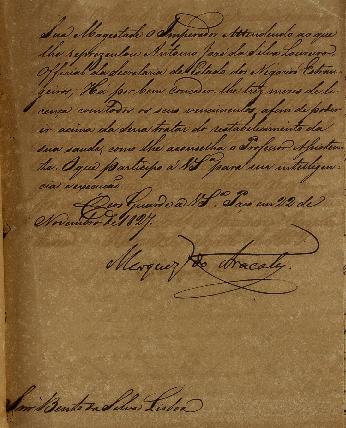 Sua Magestade o Imperador Attendendo ao que
lhe reprezentou Antonio Jozé da Silva Loureiro
Official da Secretaria de Estado dos Negocios Estran-
geiros, Ha por bem conceder-lhe trez mezes de li-
cença com todos os seus vencimentos, afim de poder
ir acima da Serra tratar do restabelecimento da
sua saude, como lhe aconselha o Professor Assisten-
te. O que participo a V. Sª. para sua intelligen-
cia e execução.
Deos Guarde a V. Sª. Paço em 22 de
Novembro de 1827.
Marquez de Aracaty.
Snr. Bento da Silva Lisboa